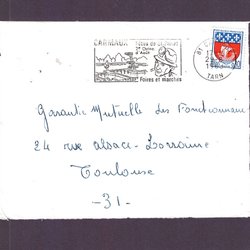 CARMAUX
Foires et marchés
81
TARN
Garantie Mutuelle des Fonctionnaires
24 rue Alsace-Lorraine
Toulouse
-31-